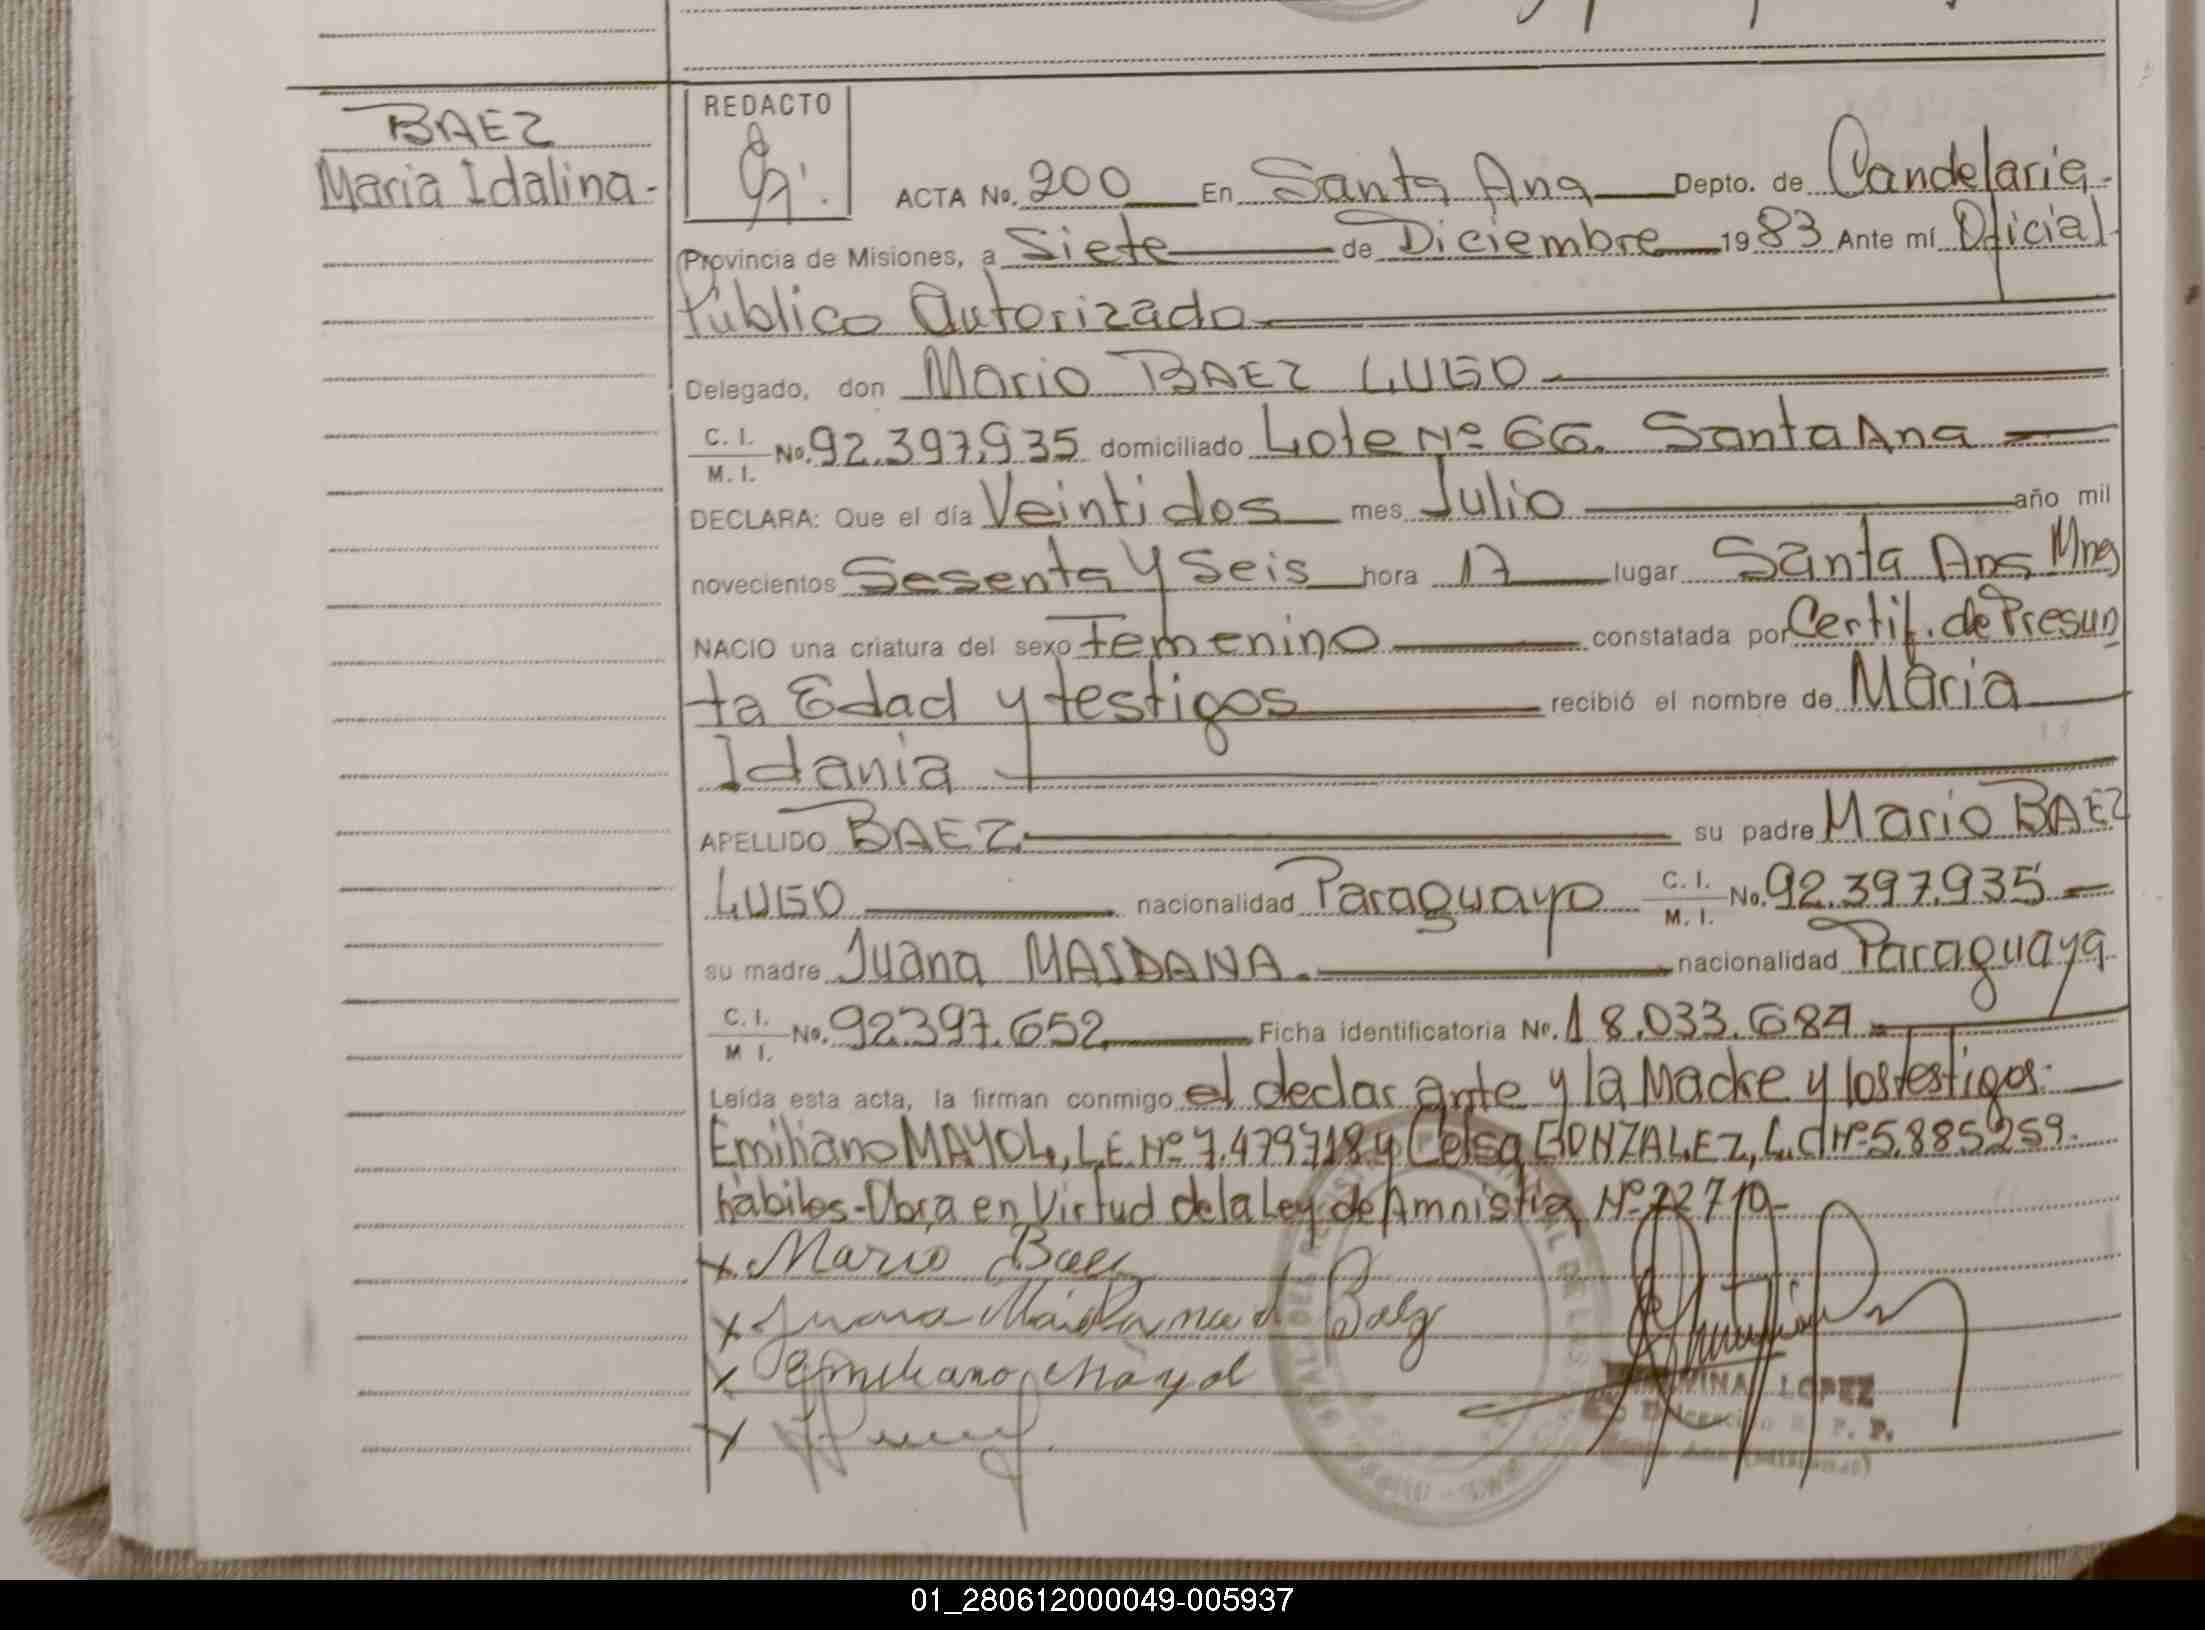 BAEZ
Maria Idalina-
REDACTO
ACTA No. 200 En Santa Ana Depto. de Candelaria
Provincia de Misiones, a Siete de Diciembre 1983 Ante mí Oficial
Público Autorizado
Delegado, don Mario BAEZ LUGO
C. I.
M. I. No. 92.397.935 domiciliado Lote Nº 66. Santa Ana
DECLARA: Que el día Veintidos mes Julio año mil
novecientos Sesenta y Seis hora 17 lugar Santa Ana Mnes
NACIO una criatura del sexo Femenino constatada por Certif. de Presun
ta Edad y testigos recibió el nombre de Maria
Idania
APELLIDO BAEZ su padre Mario BAEZ
LUGO nacionalidad Paraguayo C. I.
M. I. No. 92.397.935
su madre Juana nacionalidad Paraguaya
C. I.
M I. No. 92.397.652 Ficha identificatoria No. 18.033.684
Leída esta acta, la firman conmigo el declarante y la Madre y los testigos:
Emiliano MAYOL, L.E. Nº 7.479.718 y Celsa GONZALEZ, L.C Nº 5.885259.
hábiles-Obra en Virtud de la Ley de Amnistia Nº 22710-
x Mario Baez
x Juana Baez
x Emiliano Mayol
x
LOPEZ
01_280612000049-005937